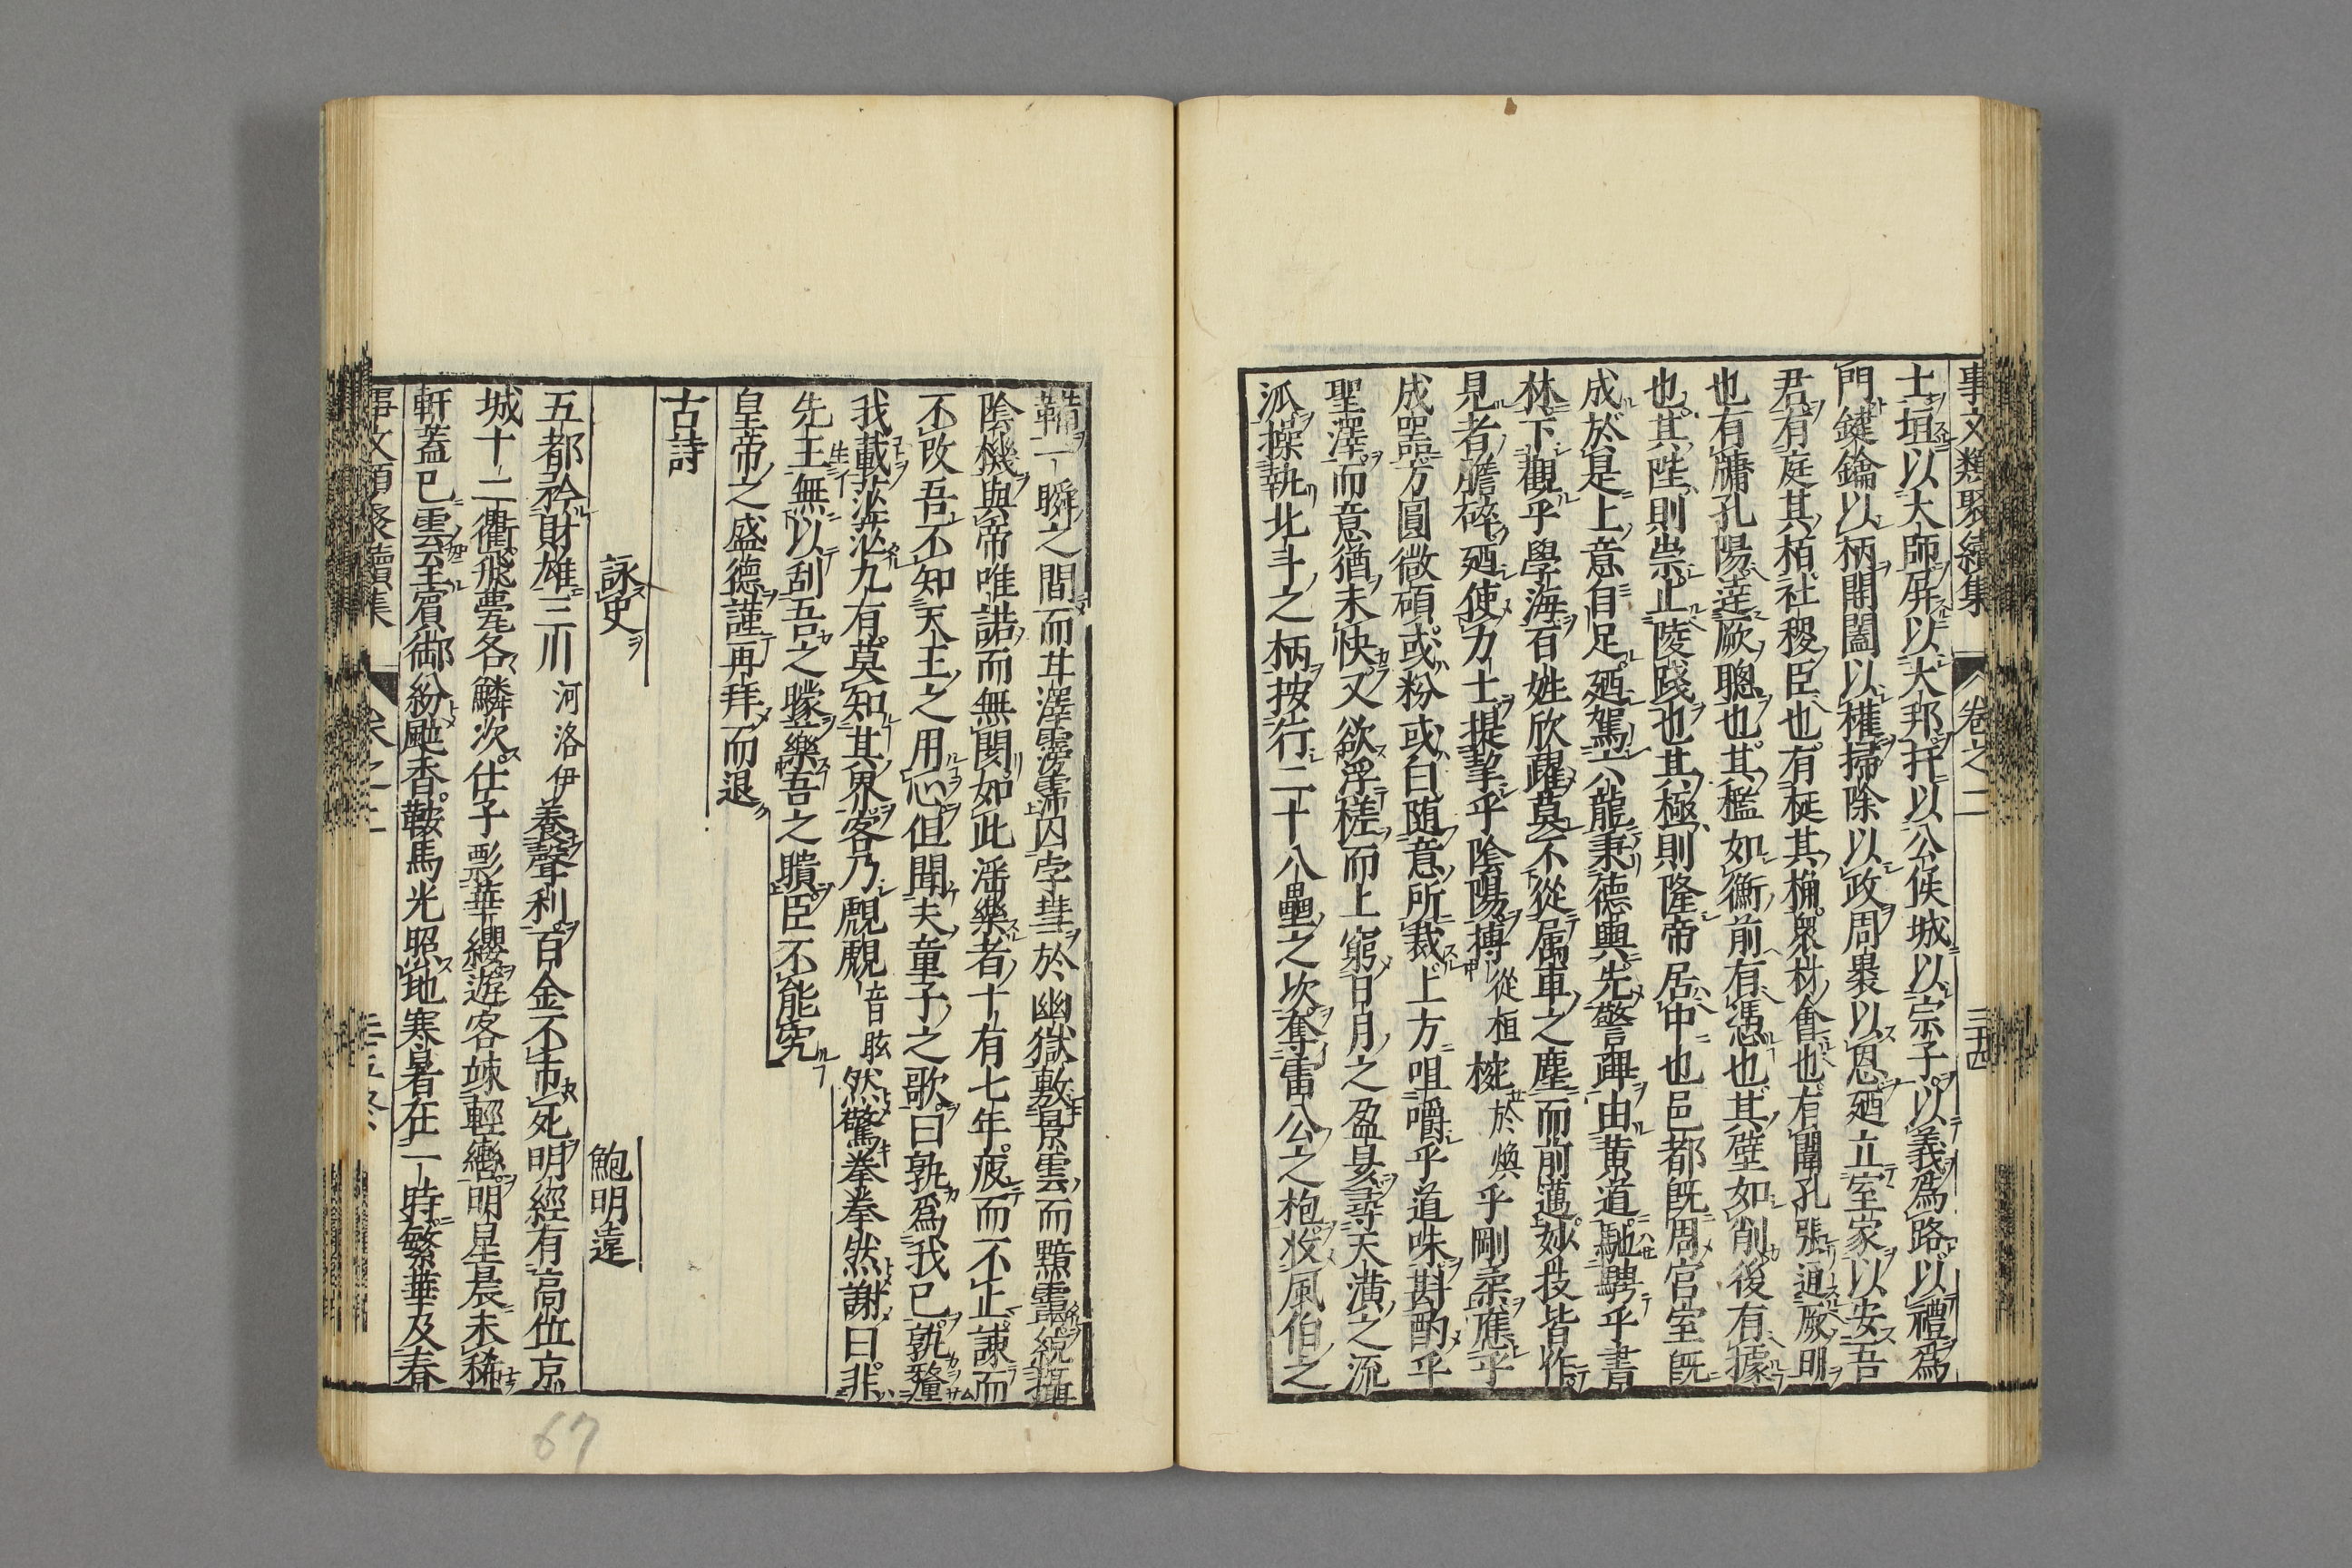 事文類聚續集 卷之二 三十四
士垣以大師屏以大邦扞以公侯城以宗子以義爲路以禮爲
門鍵鑰以柄開闔以權掃除以政周褁以恩廼立室家以安吾
君有庭其栢社稷臣也有梴其桷衆材會也有闈孔張通厥明
也有牗孔陽達厥聰也其檻如衡前有憑也其壁如削後有據
也其陛則崇止陵踐也其極則隆帝居中也邑都旣周官室旣
成於是上意自足廼駕六龍秉德輿先警蹕由黄道馳騁乎書
林下觀乎學海百姓欣躍莫不從属車之塵而前邁妙技皆作
見者膽碎廼使力士提挈乎陰陽搏從桓捖於煥乎剛柔應乎
成噐方圓微碩或粉或白随意所裁上方咀嚼乎道味斟酌乎
聖澤而意猶未快又欲浮槎而上窮日月之盈昃尋天潢之流
派操執北斗之柄按行二十八壘之次奪雷公之枹收風伯之
鞴一瞬之間而甘澤霶霈囚孛彗於幽獄敷景雲而黯靄統攝
陰機與帝唯諾而無閡如此滛樂者十有七年疲而不止諫而
不改吾不知天王之用心但聞夫童子之歌曰孰爲我已孰釐
我載茫茫九有莫知其界客乃覤覤音眩然驚拳拳然謝曰非
先王無以刮吾之矇藥吾之聵臣不能究
皇帝之盛德謹再拜而退
古詩
詠史 鮑明遠
五都矜財雄三川河洛伊養聲利百金不市死明經有高位京
城十二衢飛甍各鱗次仕子彯華纓遊客竦輕轡明星晨未稀
軒蓋已雲至賓御紛颯沓鞍馬光照地寒暑在一時繁華及春
事文類聚續集 卷之二
67